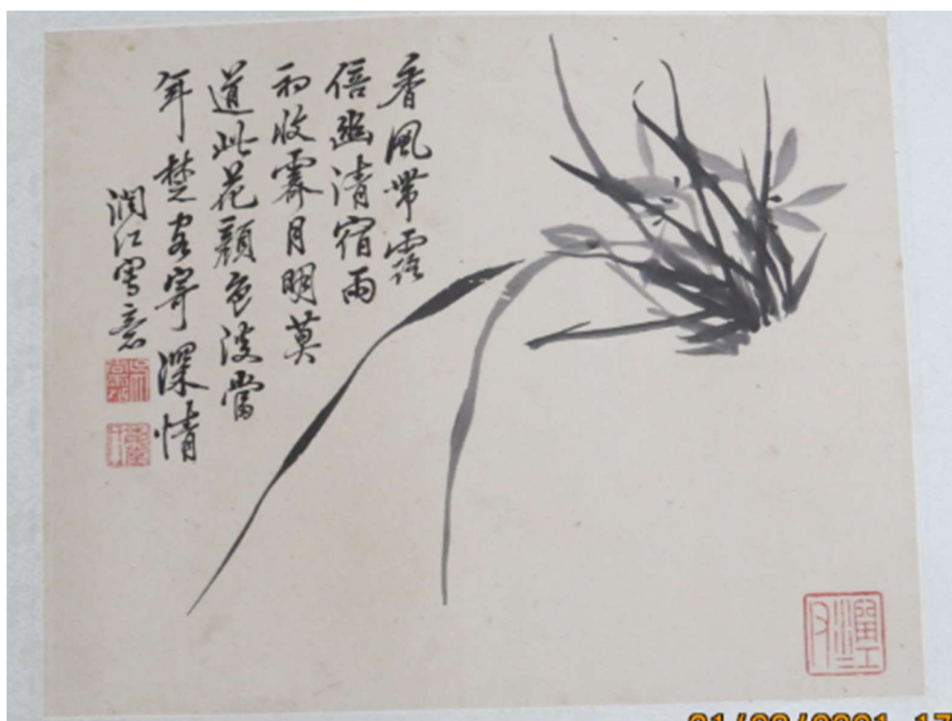 香風帶露
倍幽清宿雨
初收霽月明莫
道此花顏色淡當
年楚客寄深情
潤江寫意